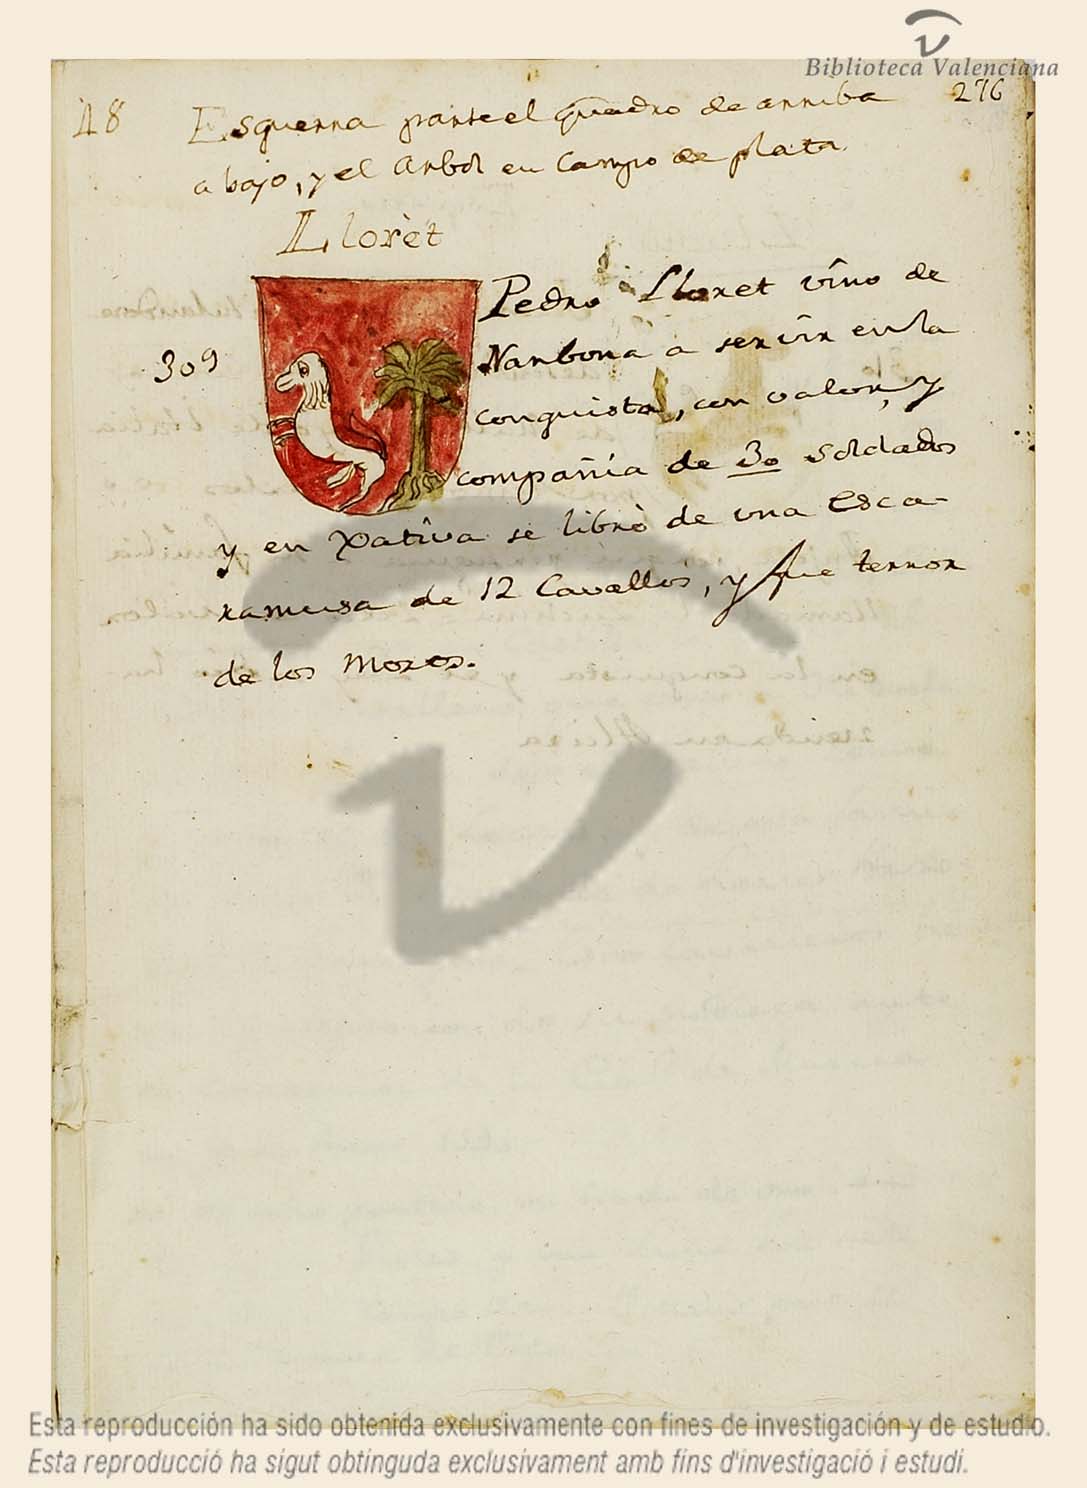 Biblioteca Valenciana
48
276
Esquerra parte el quadro de arriba
abajo, y el Arbol en Campo de plata.
Lloret
309
Pedro Lloret vino de
Narbona a servir en la
conquista, con valor, y
compañia de 30 soldados
y en Xativa se librò de una Esca-
ramusa de 12 Cavallos, y fue terror
de los Moros.
Esta reproducción ha sido obtenida exclusivamente con fines de investigación y de estudio.
Esta reproducció ha sigut obtinguda exclusivament amb fins d'investigació i estudi.